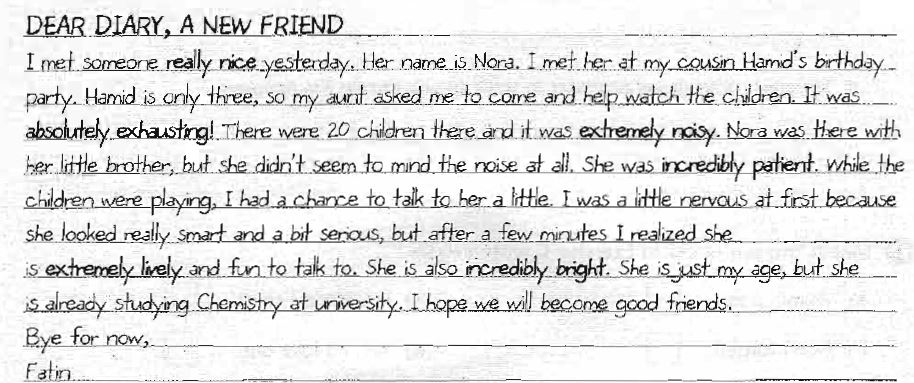 DEAR DIARY, A NEW FRIEND
I met someone really nice yesterday. Her name is Nora. I met her at my cousin Hamid's birthday
party. Hamid is only three, so my aunt asked me to come and help watch the children. It was
absolutely exhausting! There were 20 children there and it was extremely noisy. Nora was there with
her little brother, but she didn't seem to mind the noise at all. She was incredibly patient. While the
children were playing, I had a chance to talk to her a little. I was a little nervous at first because
she looked really smart and a bit serious, but after a few minutes I realized she
is extremely lively and fun to talk to. She is also incredibly bright. She is just my age, but she
is already studying Chemistry at university. I hope we will become good friends.
Bye for now,
Fatin